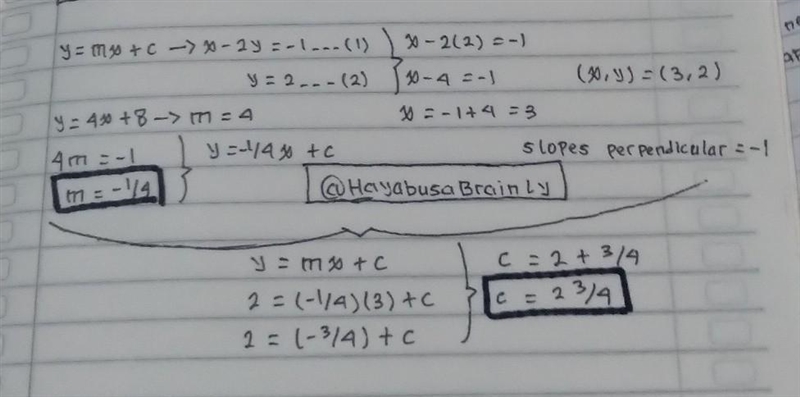 y = mx + c → x - 2y = -1 ... (1)
y = 2 ... (2)
x - 2(2) = -1
x - 4 = -1
x = -1 + 4 = 3
(x, y) = (3, 2)
y = 4x + 8 → m = 4
4m = -1
m = -1/4
y = -1/4 x + c
slopes perpendicular = -1
@HayabusaBrainly
y = mx + c
2 = (-1/4)(3) + c
2 = (-3/4) + c
c = 2 + 3/4
c = 2 3/4